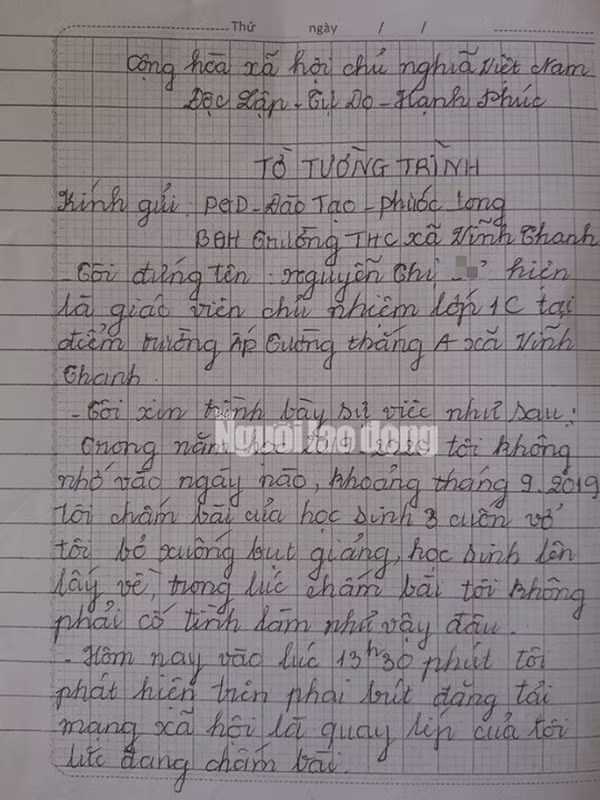 Thứ ngày / /
Cộng hòa xã hội chủ nghĩa Việt Nam
Độc Lập - Tự Do - Hạnh Phúc
TỜ TƯỜNG TRÌNH
Kính gửi: PGD - Đào Tạo - Phước Long
BGH Trường THC xã Vĩnh Thanh
- Tôi đứng tên: Nguyễn Thị hiện
là giáo viên chủ nhiệm lớp 1C tại
điểm trường ấp Tường thắng A xã Vĩnh
Thanh.
- Tôi xin trình bày sự việc như sau:
Người Lao động
Trong năm học 2019-2020 tôi không
nhớ vào ngày nào, khoảng tháng 9.2019
tôi chấm bài của học sinh 3 cuốn vở
tôi bỏ xuống bục giảng, học sinh lên
lấy về, trong lúc chấm bài tôi không
phải cố tình làm như vậy đâu.
- Hôm nay vào lúc 13h30 phút tôi
phát hiện trên phai bút đăng tải
mạng xã hội là quay líp của tôi
lúc đang chấm bài.